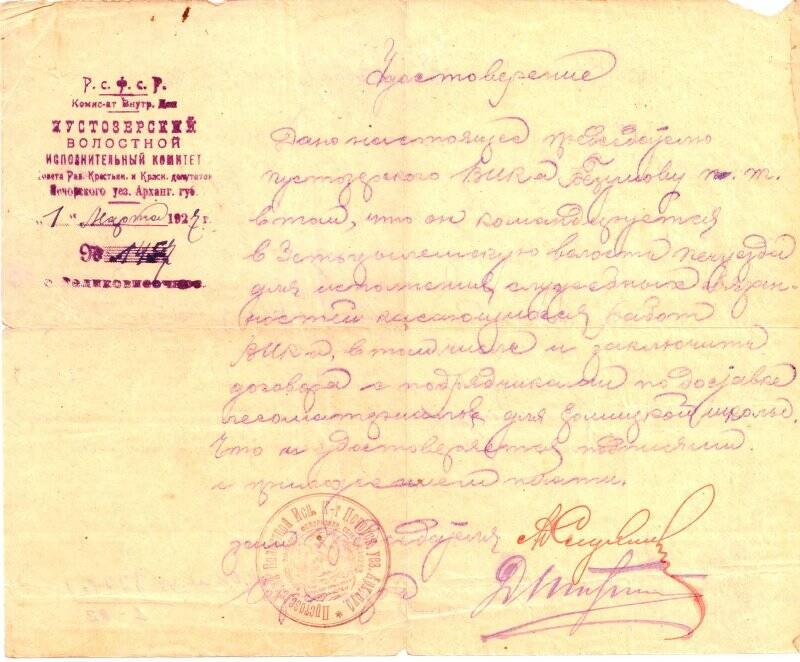 Р. С. Ф. С. Р.
Комис-ат Внутр. Дел
ПУСТОЗЕРСКИЙ
ВОЛОСТНОЙ
ИСПОЛНИТЕЛЬНЫЙ КОМИТЕТ
Совета Раб. Крестьян. и Красн. депутатов
Печорского уез. Арханг. губ.
"1" Марта 1927 г.
№ 1457
с. Великовисочное.
Удостоверение
Дано настоящее председателю
пустозерского ВИКа
в том, что он командируется
в Устьцылемскую волость печуезда
для исполнения служебных обязан-
ностей касающихся работ
ВИКа, в том числе и заключить
договора с подрядчиками по доставке
лесоматериалов для школы.
Что и удостоверяется подписями
с приложением печати.
зам. председателя